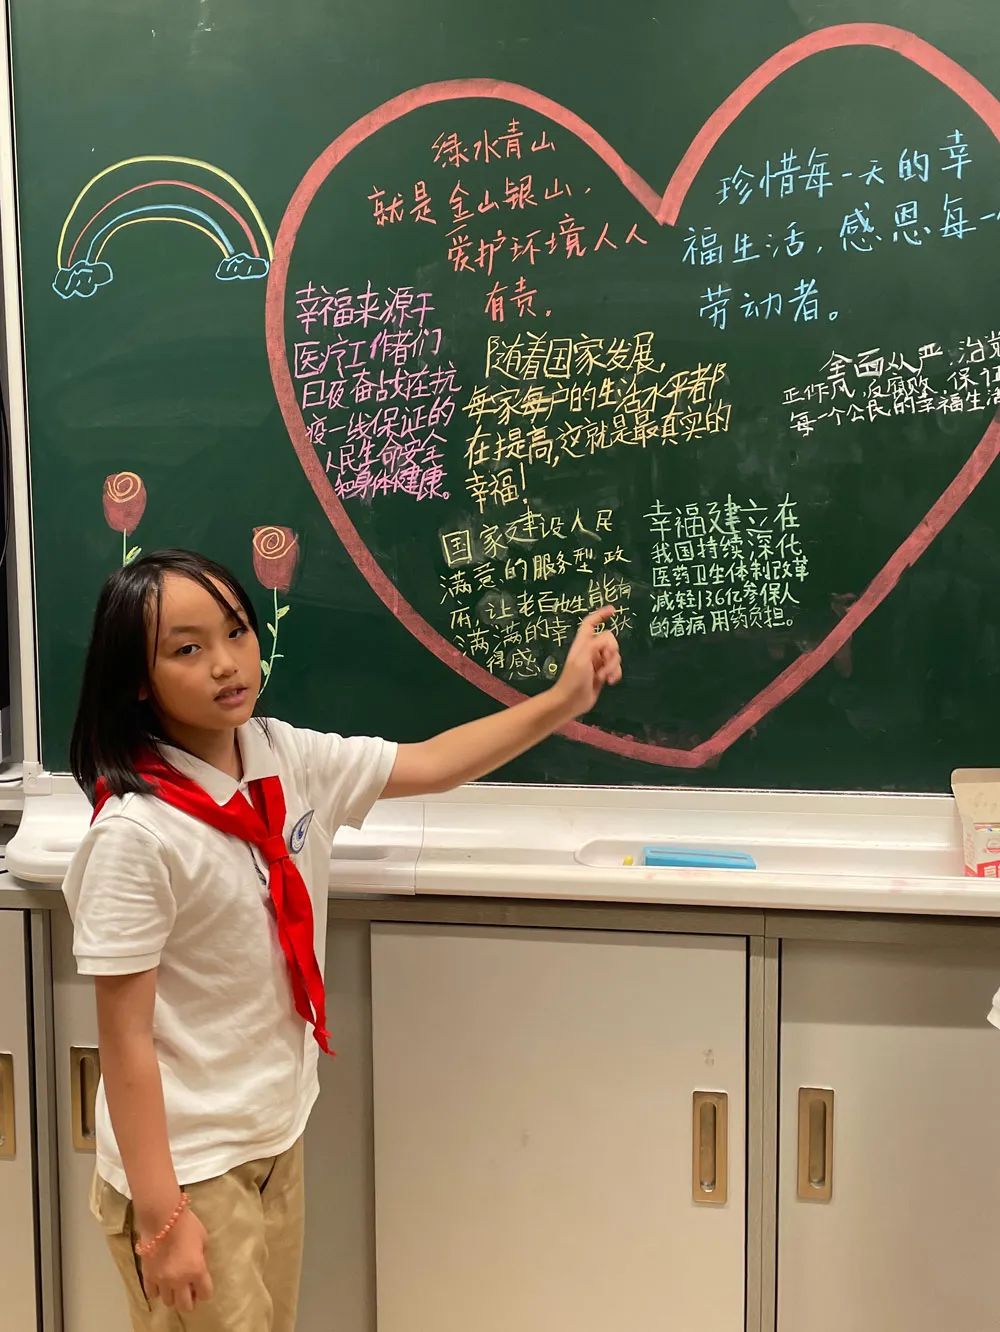 绿水青山
就是金山银山，
爱护环境人人
有责。
珍惜每一天的幸
福生活，感恩每一
劳动者。
幸福来源于
医疗工作者们
日夜奋战在抗
疫一线保证的
人民生命安全
和身体健康。
随着国家发展，
每家每户的生活水平都
在提高，这就是最真实的
幸福！
全面从严治党
正作风，反腐败，保证
每一个公民的幸福生活
国家建设人民
满意的服务型政
府，让老百姓能有
满满的幸福获
得感。
幸福建立在
我国持续深化
医药卫生体制改革
减轻13.6亿参保人
的看病用药负担。